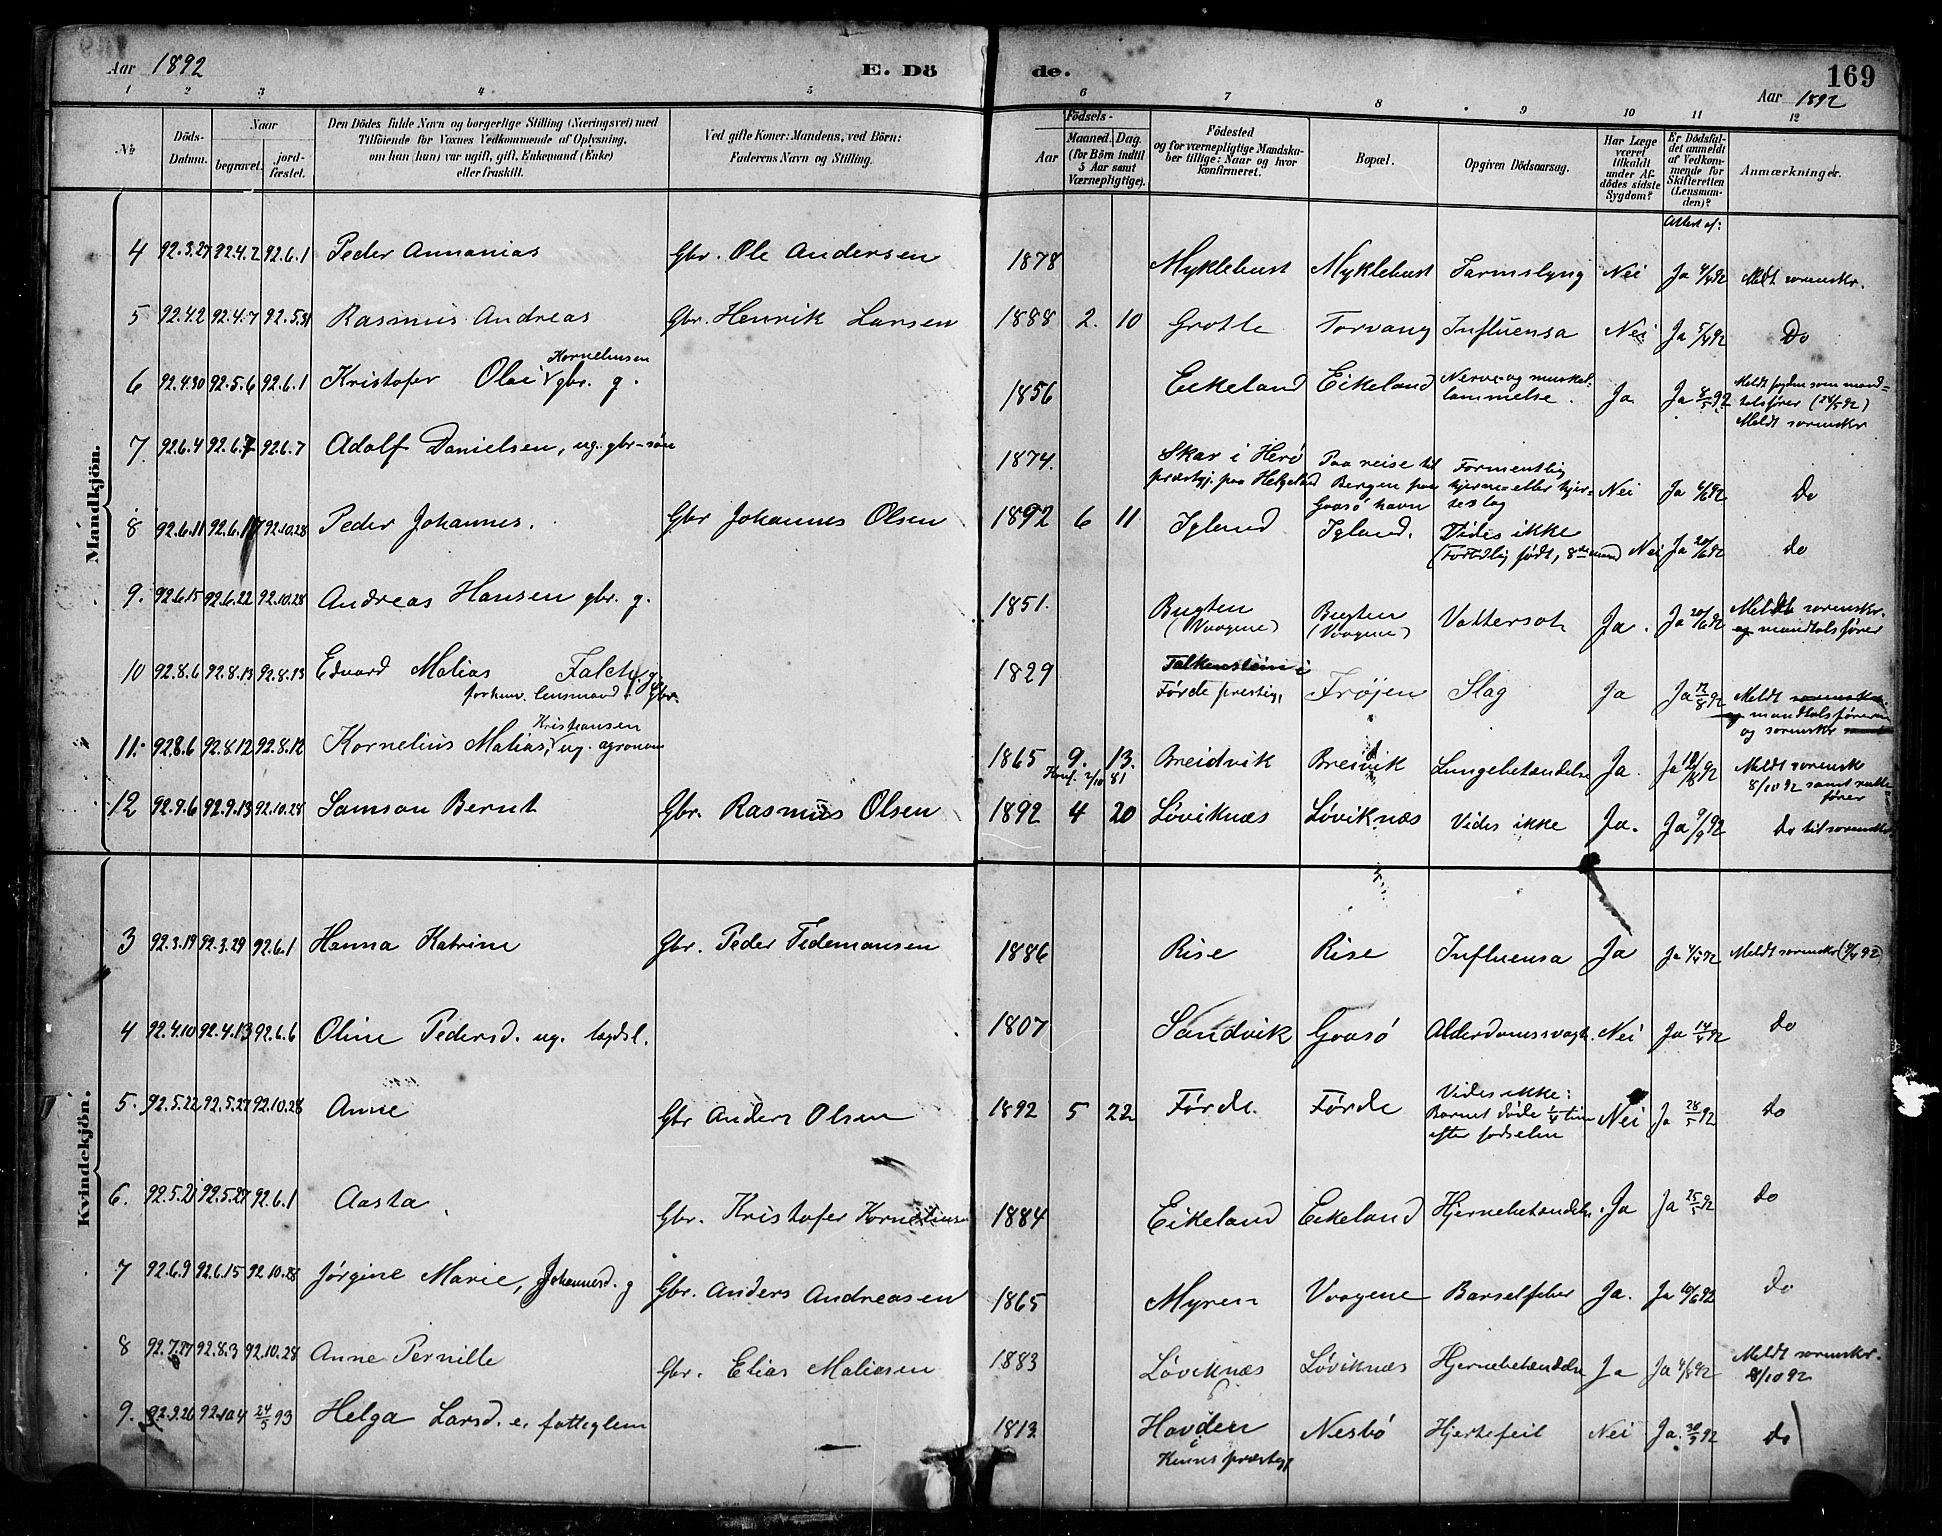 Aar 1892
E. Dö
de.
169
Aar 1892
1 2 3 4 5 6 7 8 9 10 11 12
№
Döds-Datum.
Naar
begravet.
jordfæstet.
Den Dödes fulde Navn og borgerlige Stilling (Næringsvei) med
Tilföiende for Voxnes Vedkommende af Oplysning,
om han (hun) var ugift, gift, Enkemand (Enke)
eller fraskilt.
Ved gifte Koner: Mandens, ved Börn:
Faderens Navn og Stilling.
Födsels-
Aar
Maaned. Dag.
(for Börn indtil
5 Aar samt
Værnepligtige).
Födested
og for værnepligtige Mandska-
ber tillige: Naar og hvor
konfirmeret.
Bopæl.
Opgiven Dödsaarsag.
Har Læge
været
tilkaldt
under Af-
dödes sidste
Sygdom?
Er Dödsfal-
det anmeldt
af Vedkom-
mende for
Skifteretten
(Lensman-
den)?
Anmærkninger.
Attest af:
Mandkjön.
4 92.3.27 92.4.2 92.6.1 Peder Annanias Gbr. Ole Andersen 1878 Myklebust Myklebust Tarmslyng Nei Ja 4/4 92 Meldt sorenskr.
5 92.4.2 92.4.7 92.5.31 Rasmus Andreas Gbr. Henrik Larsen 1888 2. 10 Grotle Torvang Influensa Nei Ja 5/4 92 Do
Kornelinsen
6 92.4.30 92.5.6 92.6.1 Kristofer Olai gbr. g. 1856 Eikeland Eikeland Nerve- og muskel-lammelse. Ja Ja 8/5 92 Meldt fogden som mand-
talsfører (24/5 92)
Meldt sorenskr
7. 92.6.4 92.6.7 92.6.7 Adolf Danielsen, ug. gbr-søn 1874. Skar i Herö
præstgj. paa Helgeland
Paa reise til
Bergen paa
Gaasö havn
Formentlig
hjerne- eller hjer-
teslag
Nei Ja 6/6 92 Do
8 92.6.11 92.6.17 92.10.28 Peder Johannes. Gbr Johannes Olsen 1892 6 11 Igland Igland. Vides ikke
(Fortidlig født, 8de maaned Nei Ja 20/6 92 do
9. 92.6.15 92.6.22 92.10.28 Andreas Hansen gbr. g. 1851. Bugten
(Vaagene)
Bugten
(Vaagene)
Vattersot Ja. Ja 20/6 92 Meldt sorenskr.
og mandtalsfører
10 92.8.6 92.8.13 92.8.13 Edvard Matias Falch, g.
forhenv. lensmand, Gbr. 1829 Falkenstein i
Førde prestgj. Frøjen Slag Ja Ja 12/8 92 Meldt sorenskr.
og mandtalsføreren
og sorenskr
Kristiansen
11. 92.8.6 92.8.12 92.8.12 Kornelius Matias, ug. agronom 1865 9. 13. Breidvik Breivik Lungebetændelse Ja. Ja 12/8 92 Meldt sorensk
Konf. 2/10 81
8/10 92 samt rulle-
fører
12 92.9.6 92.9.13 92.10.28 Samson Bernt Gbr. Rasmus Olsen 1892 4 20 Løviknæs Løviknæs Vides ikke Ja. Ja 9/9 92 Do til sorenskr
Kvindekjön.
3 92.3.19 92.3.29 92.6.1 Hanna Katrine Gbr. Peder Tidemansen 1886 Rise Rise Influensa Ja Ja 4/4 92 Meldt sorenskr (4/4 92)
4 92.4.10 92.4.13 92.6.6 Oline Pedersd. ug. lægdsl. 1807 Sandvik Gaasö Alderdomssvagh. Nei Ja 14/4 92 do
5. 92.5.22 92.5.27 92.10.28 Anne Gbr Anders Olsen 1892 5 22 Førde. Førde Vides ikke:
Barnet døde 1/4 time
efter fødselen
Nei Ja 28/5 92 do
6. 92.5.21 92.5.27 92.6.1 Aasta Gbr. Kristofer Kornelius 1884 Eikeland Eikeland Hjernebetændelse. Ja Ja 25/5 92 do
7 92.6.9 92.6.15 92.10.28 Jørgine Marie, Johannesd. g Gbr. Anders Andreasen 1865 Myren Vaagene Barselfeber Ja. Ja 10/6 92 do
8 92.7.27 92.8.3 92.10.28 Anne Pernille Gbr. Elias Matiesen 1883 Løviknæs Løviknæs Hjernebetændelse Ja Ja 4/8 92 Meldt sorenskr.
8/10 92
9. 92.9.26 92.10.4 24/5 93 Helga Larsd. e. fattiglem 1812 Havden
i
Kinns præstegj.
Nesbö Hjertefeil Nei Ja 30/9 92 do